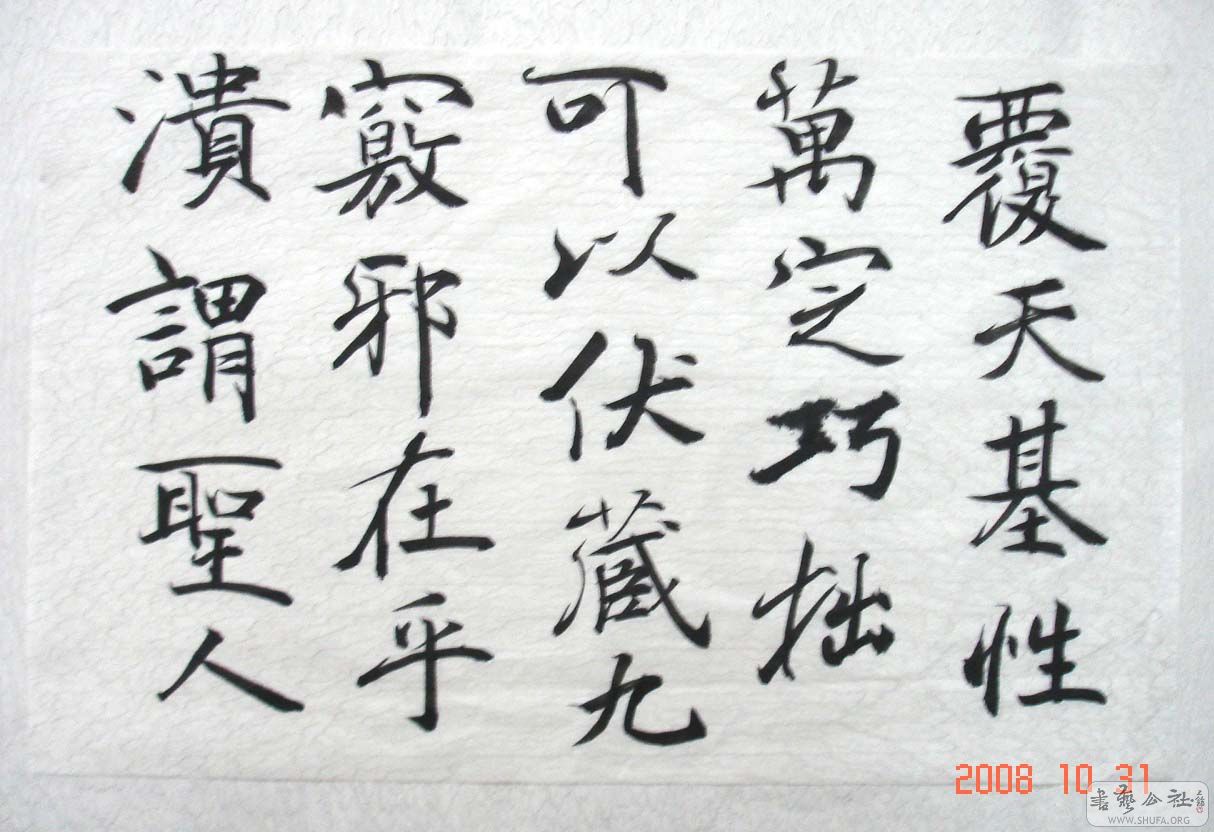 覆天基性
萬定巧拙
可以伏藏九
竅邪在乎
潰謂聖人
2008 10 31
書藝公社
WWW.SHUFA.ORG